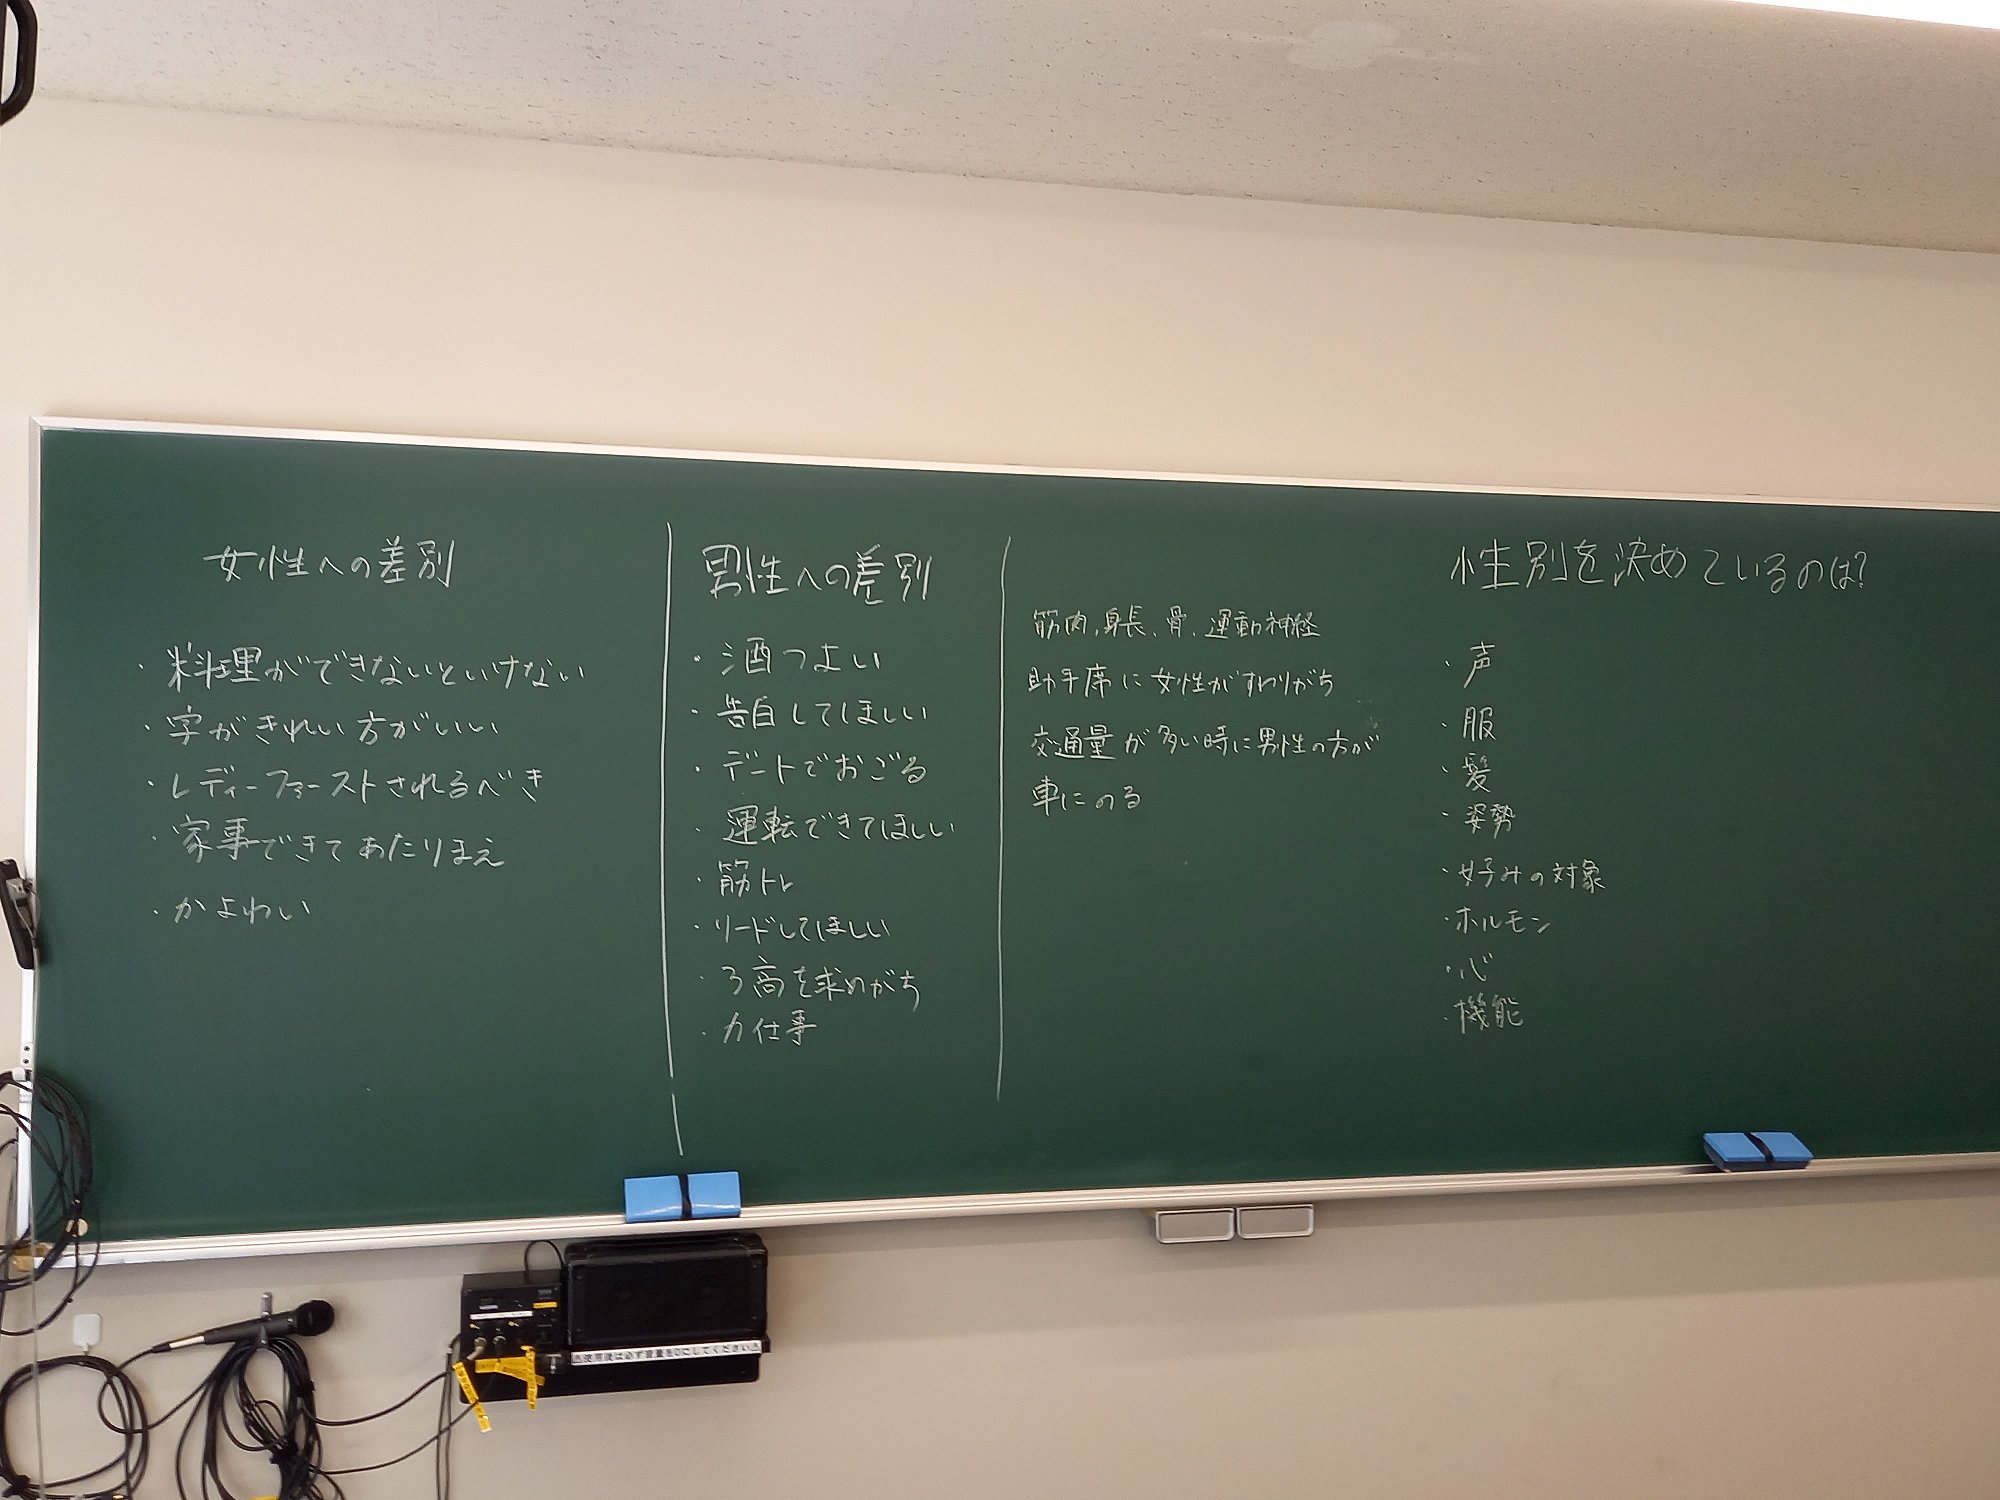 女性への差別
・料理ができないといけない
・字がきれい方がいい
・レディーファーストされるべき
・家事できてあたりまえ
・かよわい
男性への差別
・酒つよい
・告白してほしい
・デートでおごる
・運転できてほしい
・筋トレ
・リードしてほしい
・3高を求めがち
・力仕事
筋肉、身長、骨、運動神経
助手席に女性がすわりがち
交通量が多い時に男性の方が
車にのる
性別を決めているのは?
・声
・服
・髪
・姿勢
・好みの対象
・ホルモン
・心
・機能
⚠使用後は必ず音量を0にしてください⚠